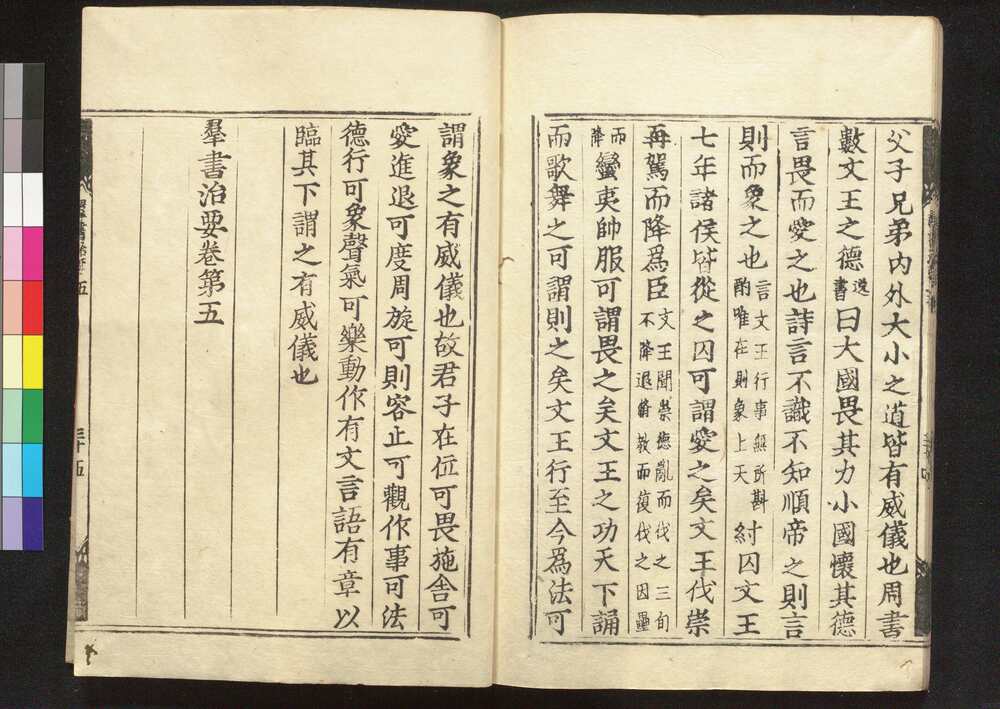 父子兄弟内外大小之道皆有威儀也周書
數文王之德逸書曰大國畏其力小國懷其德
言畏而愛之也詩言不識不知順帝之則言
則而象之也言文王行事無所斟酌唯在則象上天紂囚文王
七年諸侯皆從之囚可謂愛之矣文王伐崇
再駕而降爲臣文王聞崇德亂而伐之三旬不降退脩教而復伐之因壘
而降蠻夷帥服可謂畏之矣文王之功天下誦
而歌舞之可謂則之矣文王行至今爲法可
謂象之有威儀也故君子在位可畏施舍可
愛進退可度周旋可則容止可觀作事可法
德行可象聲氣可樂動作有文言語有章以
臨其下謂之有威儀也
羣書治要卷第五
羣書治要五
三十五